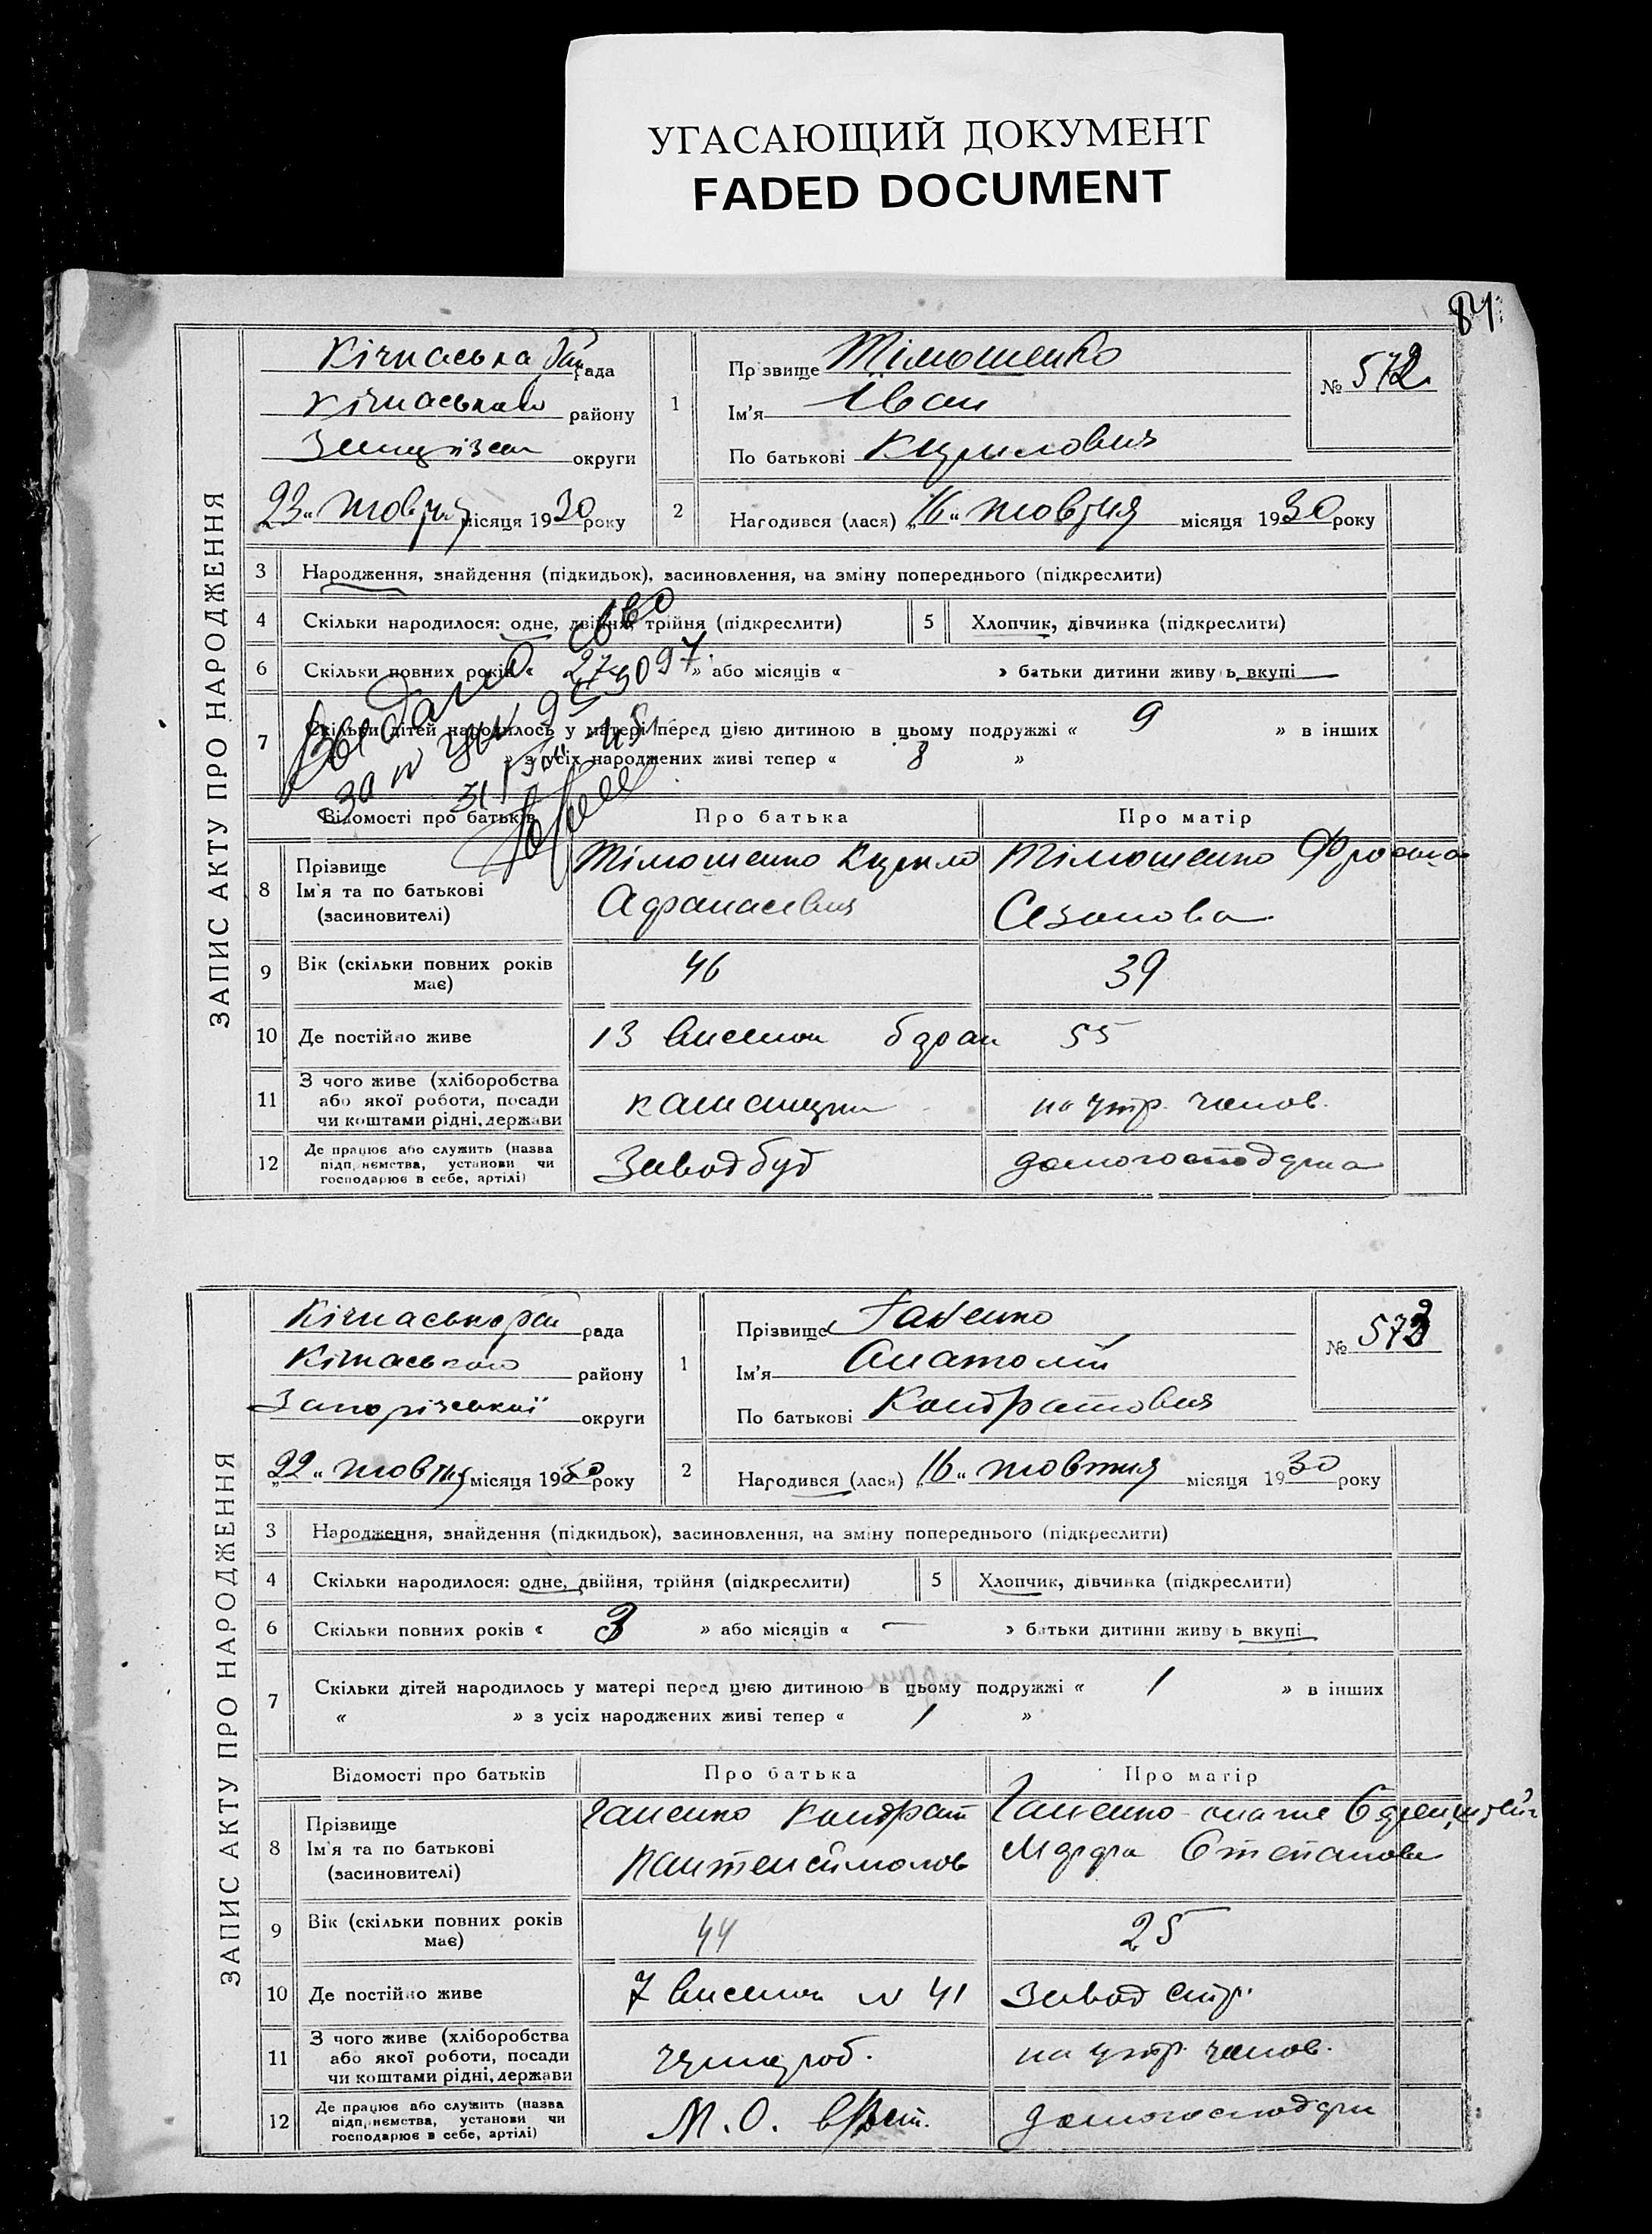 УГАСАЮЩИЙ ДОКУМЕНТ
FADED DOCUMENT
84
ЗАПИС АКТУ ПРО НАРОДЖЕННЯ
Кічкаська рай рада
Кічкаського району
округи
23 " жовтня місяця 1930 року
1
Прізвище Тімошенко
Ім'я Іван
По батькові Кирилович
№ 572
2
Народився (лася) „16" жовтня місяця 1930 року
3 Народження, знайдення (підкидьок), засиновлення, на зміну попереднього (підкреслити)
4 Скільки народилося: одне, двійня, трійня (підкреслити)
5 Хлопчик, дівчинка (підкреслити)
6 Скільки повних років « 27 » або місяців « » батьки дитини живуть вкупі
7 Скільки дітей народилось у матері перед цією дитиною в цьому подружжі « 9 » в інших
» з усіх народжених живі тепер « 8 »
Выдано св во
за №
Відомості про батьків
Про батька
Про матір
8
Прізвище
Ім'я та по батькові
(засиновителі)
Тімошенко Кирило
Афанасевич
Тімошенко
9 Вік (скільки повних років
має)
46
39
10 Де постійно живе
13 виселок барак 55
11
З чого живе (хліборобства
або якої роботи, посади
чи коштами рідні, держави
на утр. чолов.
12
Де працює або служить (назва
підприємства, установи чи
господарює в себе, артілі)
Заводбуд
домогосподарка
ЗАПИС АКТУ ПРО НАРОДЖЕННЯ
Кічкаська рай рада
Кічкаського району
Запорізької округи
„22" жовтня місяця 1930 року
1
Прізвище
Ім'я Анатолій
По батькові Кондратович
№ 573
2
Народився (лася) „16" жовтня місяця 1930 року
3 Народження, знайдення (підкидьок), засиновлення, на зміну попереднього (підкреслити)
4 Скільки народилося: одне, двійня, трійня (підкреслити)
5 Хлопчик, дівчинка (підкреслити)
6 Скільки повних років « 3 » або місяців « — » батьки дитини живуть вкупі
7 Скільки дітей народилось у матері перед цією дитиною в цьому подружжі « 1 » в інших
« » з усіх народжених живі тепер « 1 »
Відомості про батьків
Про батька
Про матір
8
Прізвище
Ім'я та по батькові
(засиновителі)
Кондрат
Степанова
9 Вік (скільки повних років
має)
44
25
10 Де постійно живе
7 виселок № 41
11
З чого живе (хліборобства
або якої роботи, посади
чи коштами рідні, держави
чорнороб.
на утр. чолов.
12
Де працює або служить (назва
підприємства, установи чи
господарює в себе, артілі)
М. О.
домогосподарк